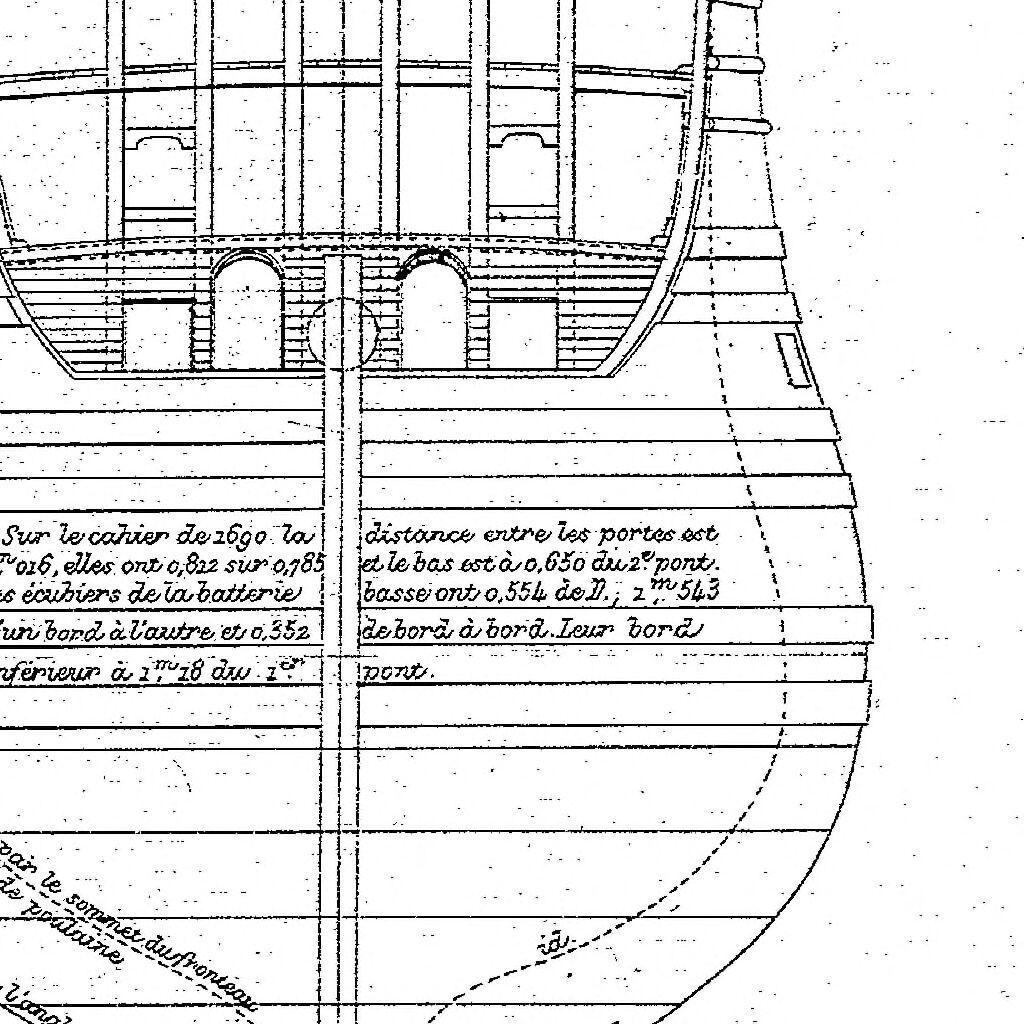 Sur le cahier de 1690 la distance entre les portes est
016, elles ont 0,812 sur 0,785 et le bas est à 0,650 du 2e pont.
es écubiers de la batterie basse ont 0,554 de D.; 1m543
'un bord à l'autre et 0,352 de bord à bord. Leur bord
nférieur à 1m18 du 1er pont.
par le sommet du fronteau
de poulaine
id.
l'angl